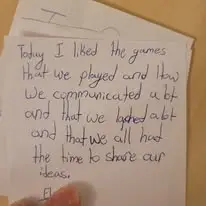 Today I liked the games
that we played and How
we communicated a bt
and that we laghed a bt
and that we all had
the time to share our
ideas.